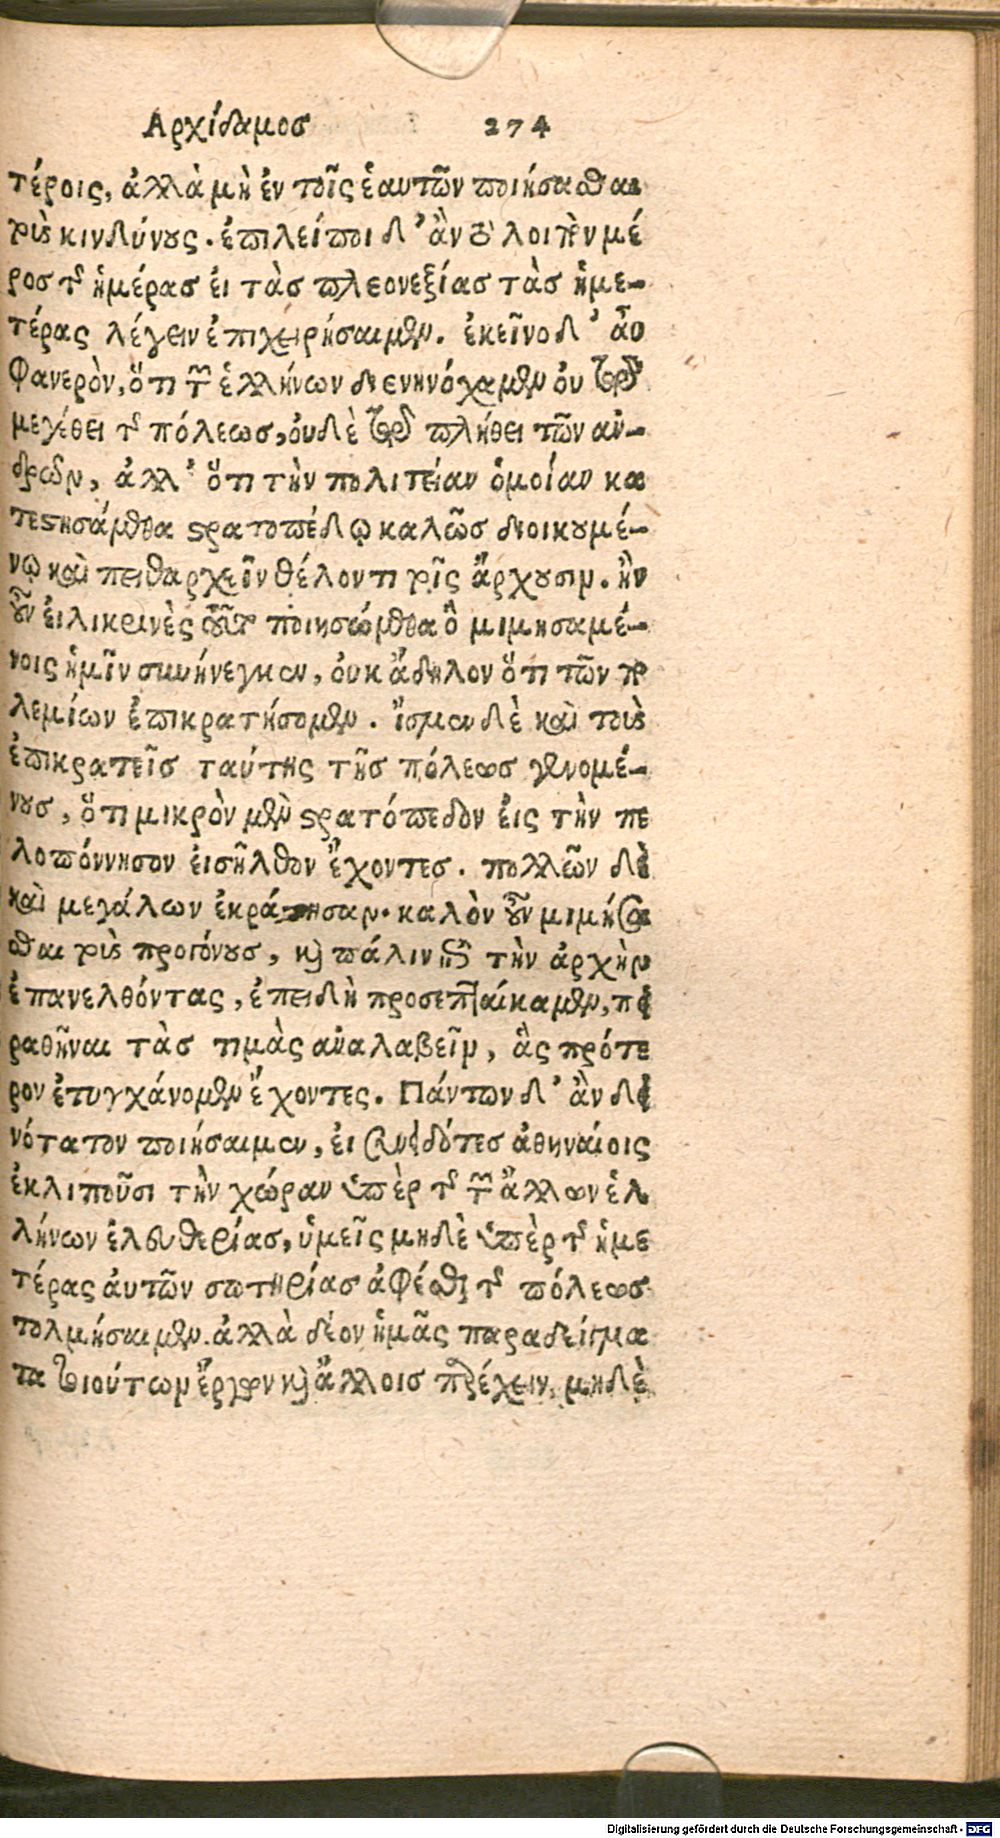 Αρχίδαμος 274
τέροις, ἀλλὰ μὴ ἐν τοῖς ἑαυτῶν ποιήσασθαι
τοὺς κινδύνους. ἐπιλείποι δ' ἂν τὸ λοιπὸν μέ
ρος τῆς ἡμέρας εἰ τὰς πλεονεξίας τὰς ἡμε-
τέρας λέγειν ἐπιχειρήσαιμεν. ἐκεῖνο δ' ἂν
φανερὸν, ὅτι τῶν ἑλλήνων διενηνόχαμεν οὐ τῷ
μεγέθει τῆς πόλεως, οὐδὲ τῷ πλήθει τῶν ἀν-
δρῶν, ἀλλ' ὅτι τὴν πολιτείαν ὁμοίαν κα
τεστησάμεθα στρατοπέδῳ καλῶς διοικουμέ-
νῳ καὶ πειθαρχεῖν θέλοντι τοῖς ἄρχουσιν. ἢν
οὖν εἰλικρινὲς τοῦτο ποιησώμεθα ὃ μιμησαμέ-
νοις ἡμῖν συνήνεγκεν, οὐκ ἄδηλον ὅτι τῶν πο
λεμίων ἐπικρατήσομεν. ἴσμεν δὲ καὶ τοὺς
ἐπικρατεῖς ταύτης τῆς πόλεως γενομέ-
νους, ὅτι μικρὸν μὲν στρατόπεδον εἰς τὴν πε
λοπόννησον εἰσῆλθον ἔχοντες. πολλῶν δὲ
καὶ μεγάλων ἐκράτησαν. καλὸν οὖν μιμήσα
σθαι τοὺς προγόνους, καὶ πάλιν ἐπὶ τὴν ἀρχὴν
ἐπανελθόντας, ἐπειδὴ προσεπταίκαμεν, πει
ραθῆναι τὰς τιμὰς ἀναλαβεῖν, ἃς πρότε
ρον ἐτυγχάνομεν ἔχοντες. Πάντων δ' ἂν δει
νότατον ποιήσαιμεν, εἰ συνειδότες ἀθηναίοις
ἐκλιποῦσι τὴν χώραν ὑπὲρ τῆς τῶν ἄλλων ἑλ
λήνων ἐλευθερίας, ὑμεῖς μηδὲ ὑπὲρ τῆς ἡμε
τέρας αὐτῶν σωτηρίας ἀφέσθαι τῆς πόλεως
τολμήσαιμεν. ἀλλὰ δέον ἡμᾶς παραδείγμα
τα τοιούτων ἔργων καὶ ἄλλοις παρέχειν, μηδὲ
Digitalisierung gefördert durch die Deutsche Forschungsgemeinschaft - DFG